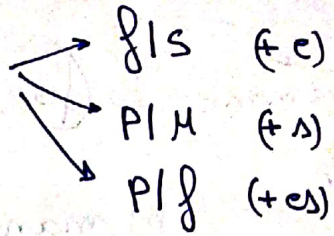 f/s (+ e)
P/M (+ s)
P/f (+ es)